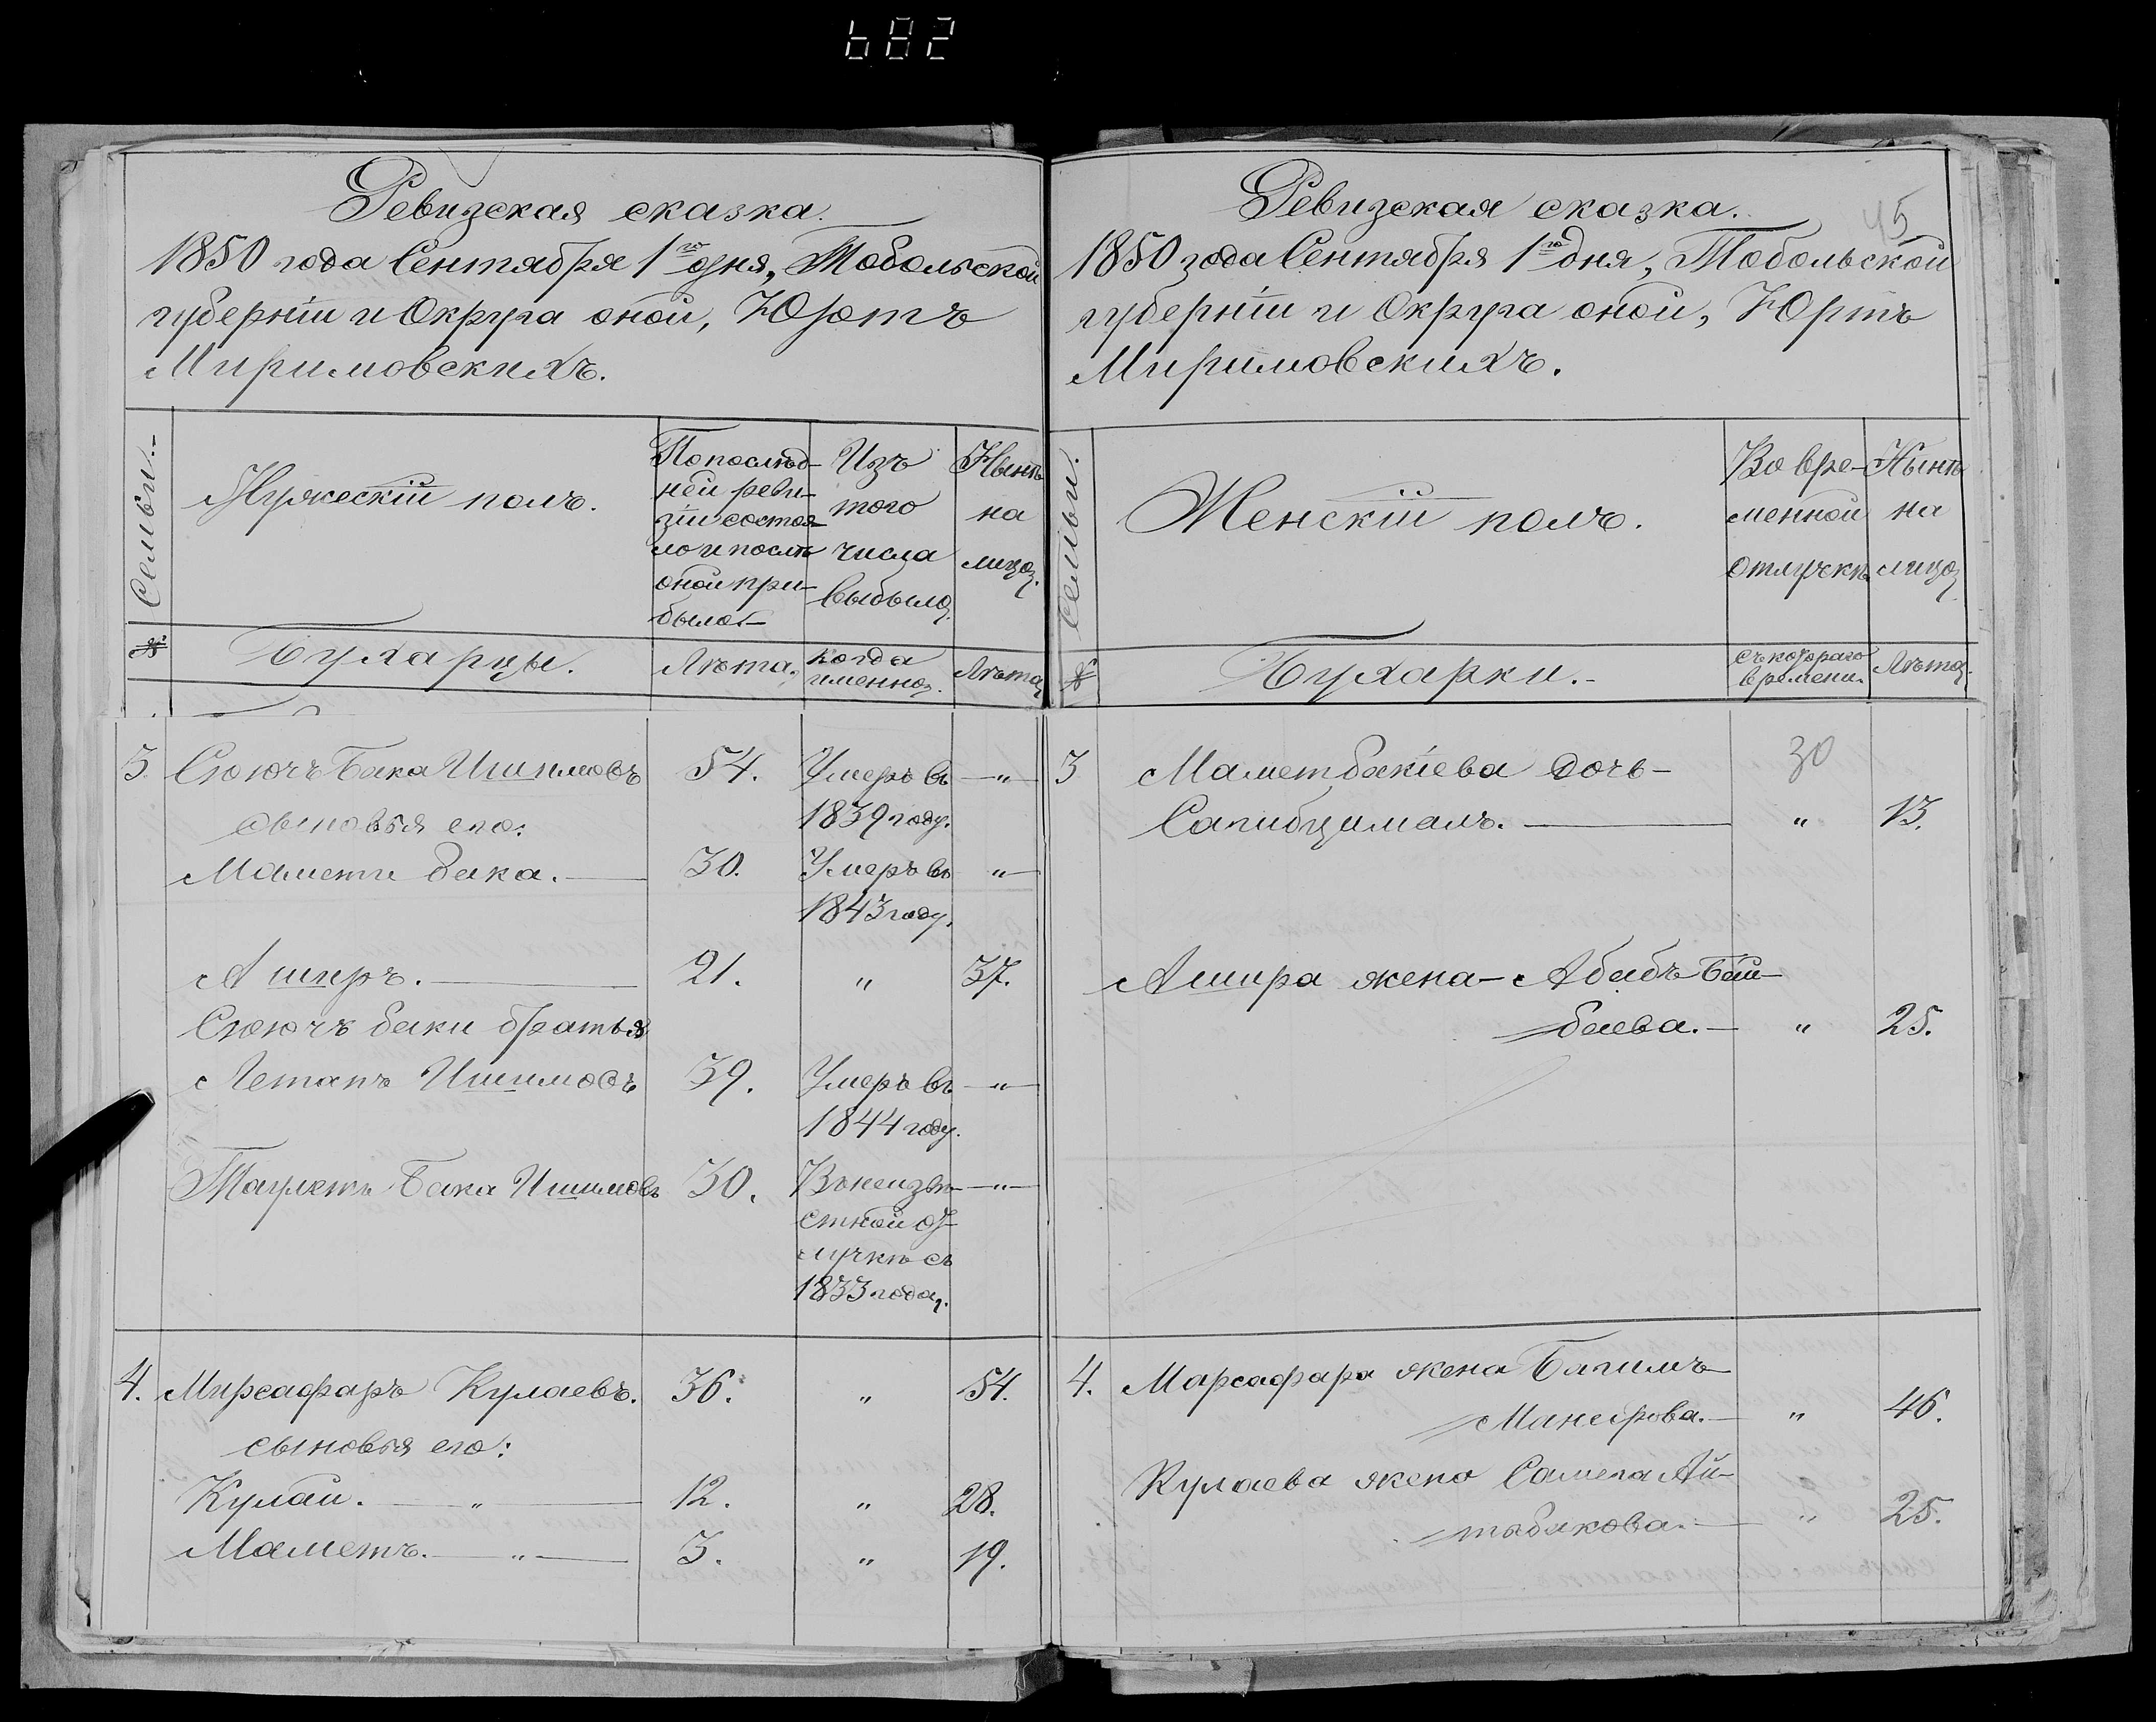 682
Ревизская сказка.
1850 года Сентября 1го дня, Тобольской
губерніи и Округа оной, Юртъ
Миримовскихъ.
Семьи.
Мужескій полъ.
По послѣд-
ней реви-
зіи состоя-
ло и послѣ
оной при-
было
Изъ
того
числа
выбыло.
Нынѣ
на
лицо.
№
Бухарцы.
Лѣта.
когда
именно.
Лѣта
3. Сюючь Бака Ишимовъ 54. Умеръ въ „
сыновья его: 1839 году.
Маметь бака. 30. Умеръ въ „
1843 году.
Аширъ. 21. „ 37.
Сюючъ баки братья
Летапъ Ишимовъ 39. Умеръ въ „
1844 году.
Бака Ишимовъ 30. Въ неизвѣ- „
стной от-
лучкѣ съ
1833 года.
4. Мирсафаръ Кулаевъ. 36. „ 54.
сыновья его:
Кулай. „ 12. „ 28.
Маметъ. „ 3. „ 19.
45
Ревизская сказка.
1850 года Сентября 1го дня, Тобольской
губерніи и Округа оной, Юртъ
Миримовскихъ.
Семьи.
Женскій полъ.
Во вре-
менной
отлучкѣ
Нынѣ
на
лицо
№
Бухарки.
съ котораго
времени.
Лѣта.
3 Маметбакіева дочь- 30
Сагибцималъ. „ 13.
Ашира жена- Абабъ Бай-
баева. „ 25.
4. Марсафара жена Багимъ
Мансурова. „ 46.
Кулаева жена Самега Ай-
табакова. „ 25.